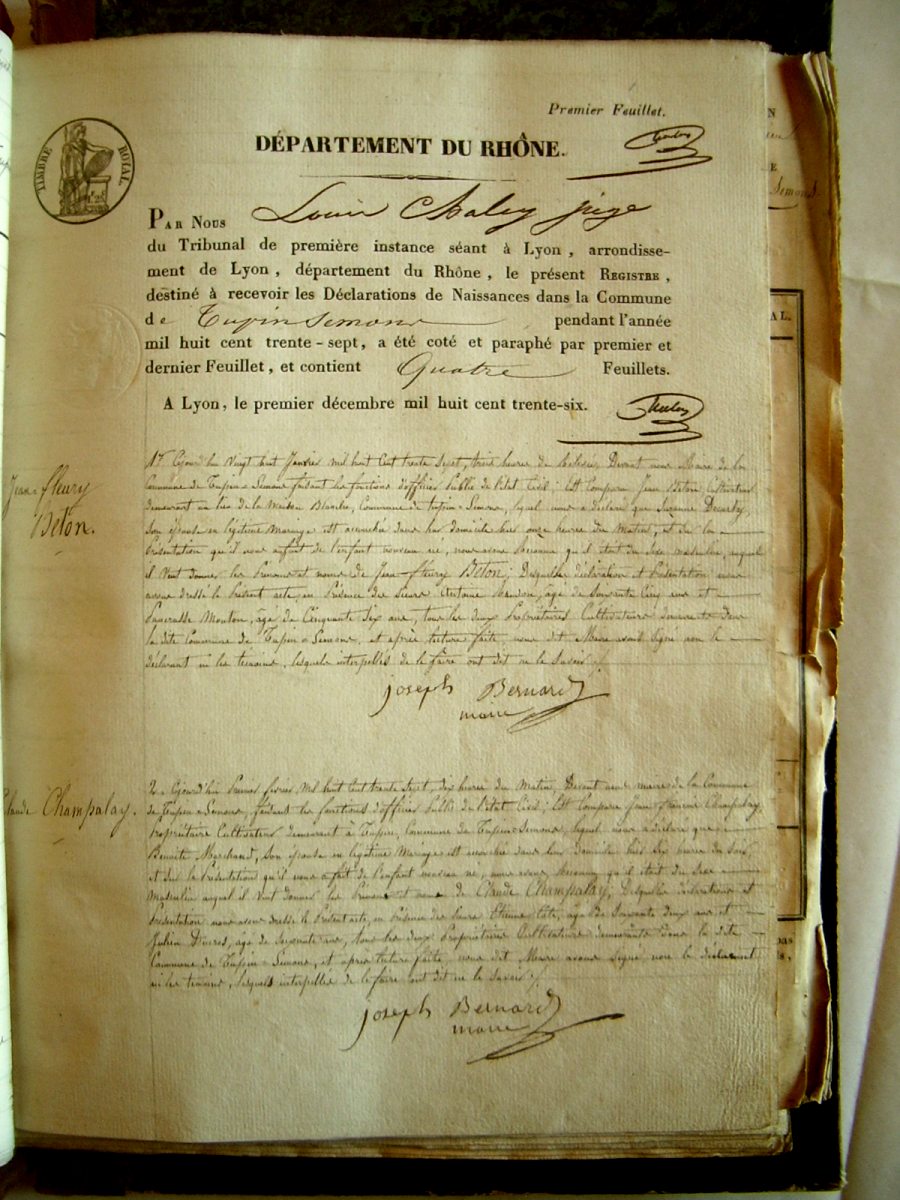 Premier Feuillet.
DÉPARTEMENT DU RHÔNE.
TIMBRE ROYAL
PAR NOUS Louis Chaley juge
du Tribunal de première instance séant à Lyon, arrondisse-
ment de Lyon, département du Rhône, le présent REGISTRE,
destiné à recevoir les Déclarations de Naissances dans la Commune
de Tupin Semons, pendant l'année
mil huit cent trente-sept, a été coté et paraphé par premier et
dernier Feuillet, et contient Quatre Feuillets.
A Lyon, le premier décembre mil huit cent trente-six.
Jean-fleury
Béton.
vingt huit Janvier mil huit Cent trente Sept, heures du Devant nous Maire de la
Commune de Tupin-Semons faisant les fonctions d'officier public de l'état Civil; Est Comparu Jean Béton, Cultivateur
demeurant au lieu de la Maison Blanche, Commune de tupin-Semons, lequel nous a déclaré que Suzanne
Son épouse en légitime Mariage est accouchée dans leur domicile hier onze heures du Matin, et Sur la
Présentation qu'il nous a fait de l'enfant nouveau né, nous avons Reconnu qu'il était du Sexe masculin, auquel
il Veut donner les Prénoms et noms de Jean-fleury Béton; Desquelles déclaration et Présentation nous
avons dressé le Présent acte, en Présence des Sieurs Antoine âgé de Soixante Cinq ans et
Mouton, âgé de Cinquante Six ans, tous les deux Propriétaires Cultivateurs demeurants dans
la dite Commune de Tupin-Semons, et après lecture faite, nous dit Maire avons Signé non le
déclarant ni les témoins, lesquels interpellés de le faire ont dit ne le Savoir
joseph Bernard
maire
Claude Champalay.
2 Premier février Mil huit Cent trente Sept, dix heures du Matin, Devant nous maire de la Commune
de Tupin-Semons, faisant les fonctions d'officier public de l'état Civil; Est Comparu Jean Champalay
Propriétaire Cultivateur demeurant à Tupin, Commune de Tupin-Semons, lequel nous a déclaré que
Benoite Marchand, Son épouse en légitime Mariage est accouchée dans leur domicile hier Six heures du Soir,
et Sur la Présentation qu'il nous a fait de l'enfant nouveau né, nous avons Reconnu qu'il était du Sexe
Masculin auquel il Veut donner les Prénoms et noms de Claude Champalay, Desquelles déclarations et
Présentation nous avons dressé le Présent acte, en Présence des Sieurs Etienne âgé de Soixante deux ans et
Julien âgé de ans, tous les deux Propriétaires Cultivateurs demeurants dans la dite
Commune de Tupin-Semons, et après lecture faite, nous dit Maire avons Signé non le déclarant
ni les témoins, lesquels interpellés de le faire ont dit ne le Savoir
joseph Bernard
maire